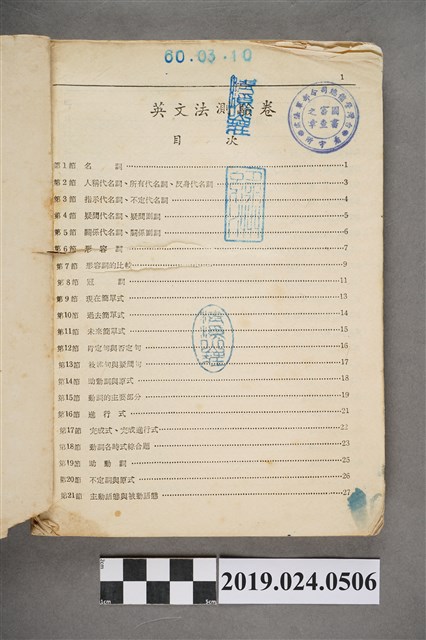 60.03.10
1
英文法測驗卷
目 次
第1節 名 詞 1
第2節 人稱代名詞、所有代名詞、反身代名詞 3
第3節 指示代名詞、不定代名詞 4
第4節 疑問代名詞、疑問副詞 5
第5節 關係代名詞、關係副詞 6
第6節 形容詞 7
第7節 形容詞的比較 9
第8節 冠 詞 11
第9節 現在簡單式 13
第10節 過去簡單式 14
第11節 未來簡單式 15
第12節 肯定句與否定句 16
第13節 敘述句與疑問句 17
第14節 助動詞與原式 18
第15節 動詞的主要部分 19
第16節 進行式 21
第17節 完成式、完成進行式 22
第18節 動詞各時式綜合題 23
第19節 助動詞 25
第20節 不定詞與原式 26
第21節 主動語態與被動語態 27
7cm
1cm
5cm
2019.024.0506